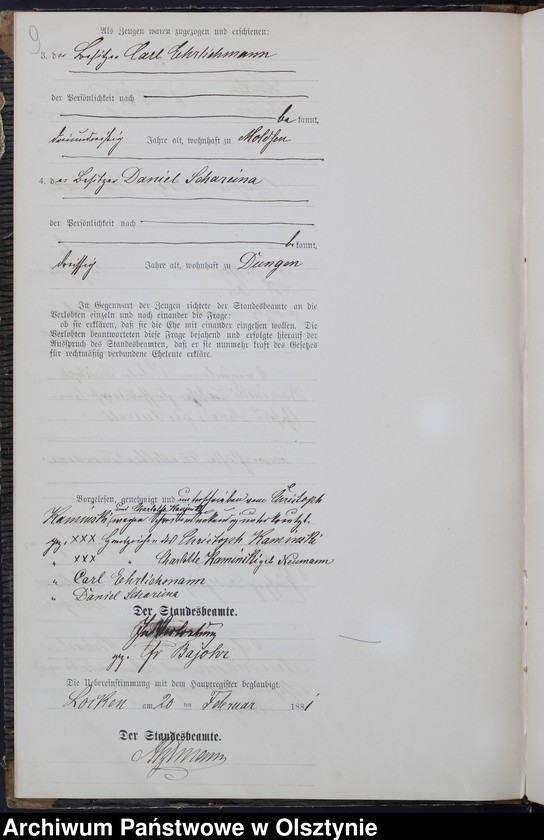 9
Als Zeugen waren zugezogen und erschienen:
3. der Besitzer Carl Ehrlichmann
der Persönlichkeit nach
be kannt,
dreiunddreißig Jahre alt, wohnhaft zu Moldsen
4. der Besitzer Daniel Schareina
der Persönlichkeit nach
be kannt,
dreissig Jahre alt, wohnhaft zu Dungen
In Gegenwart der Zeugen richtete der Standesbeamte an die
Verlobten einzeln und nach einander die Frage:
ob sie erklären, daß sie die Ehe mit einander eingehen wollen. Die
Verlobten beantworteten diese Frage bejahend und erfolgte hierauf der
Ausspruch des Standesbeamten, daß er sie nunmehr kraft des Gesetzes
für rechtmäßig verbundene Eheleute erkläre.
Vorgelesen, genehmigt und unterschrieben vom Christoph
und Charlotte Kaminski
Kaminski wegen unterkreuzt.
gz. XXX Handzeichen des Christoph Kaminski
" XXX " Charlotte Kaminski geb Neumann
" Carl Ehrlichmann
" Daniel Schareina
Der Standesbeamte.
In Vertretung
gz. Bajohr
Die Uebereinstimmung mit dem Hauptregister beglaubigt.
Locken am 20 ten Februar 1881
Der Standesbeamte.
Archiwum Państwowe w Olsztynie